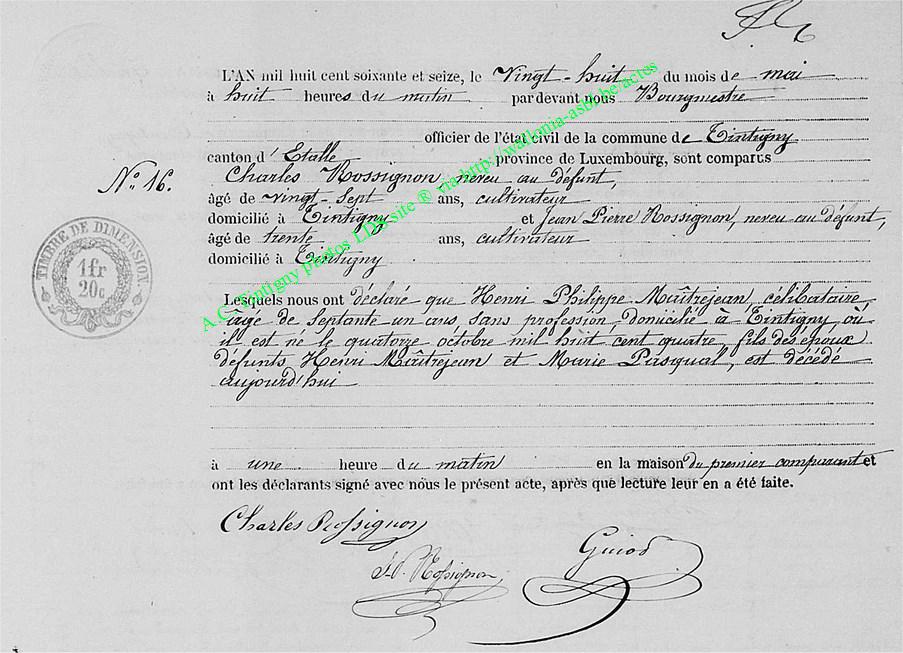 L'AN mil huit cent soixante et seize, le Vingt-huit du mois de mai
à huit heures du matin par devant nous Bourgmestre
officier de l'état civil de la commune de Tintigny
canton d'Etalle province de Luxembourg, sont comparus
Nº 16.
Charles Rossignon neveu au défunt,
âgé de vingt-sept ans, cultivateur
domicilié à Tintigny et Jean Pierre Rossignon, neveu au défunt,
âgé de trente ans, cultivateur
domicilié à Tintigny
TIMBRE DE DIMENSION.
1 fr
20c
Lesquels nous ont déclaré que Henri Philippe Maîtrejean, célibataire,
âgé de septante un ans, sans profession, domicilié à Tintigny, où
il est né le quatorze octobre mil huit cent quatre, fils des époux
défunts Henri Maîtrejean et Marie Pasqual, est décédé
aujourd'hui
à une heure du matin en la maison du premier comparant et
ont les déclarants signé avec nous le présent acte, après que lecture leur en a été faite.
Charles Rossignon
J-P. Rossignon
Guiot
A.C. Tintigny photos LDS site ® via http://wallonia-asbl.be/actes